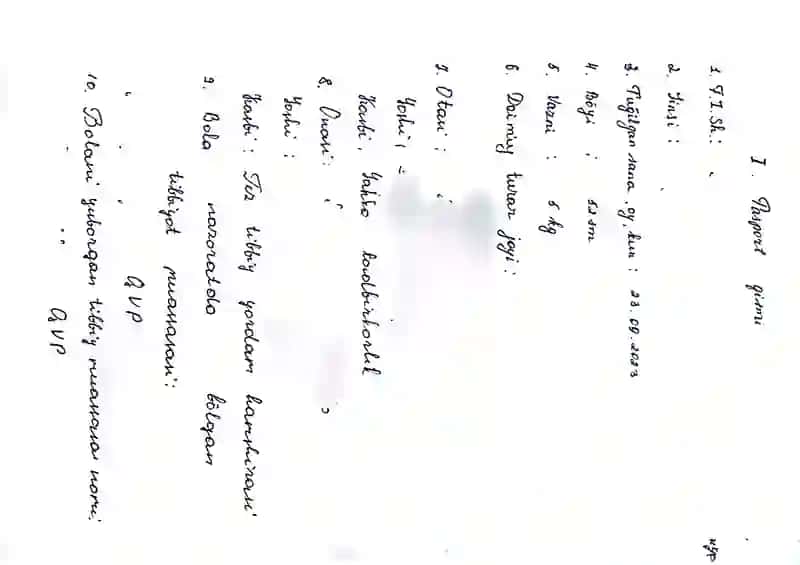 I. Pasport qismi
1. F.I.Sh:
2. Jinsi:
3. Tug'ilgan sana, oy, kun: 23.09.2023
4. Bo'yi : 52 sm
5. Vazni : 5 kg
6. Doimiy turar joyi:
7. Otasi:
Yoshi: -
Kasbi: Yakka tadbirkorlik
8. Onasi:
Yoshi:
Kasbi: Tez tibbiy yordam hamshirasi
9. Bola nazoratda bo'lgan
tibbiyot muassasasi:
QVP
10. Bolani yuborgan tibbiy muassasa nomi:
QVP